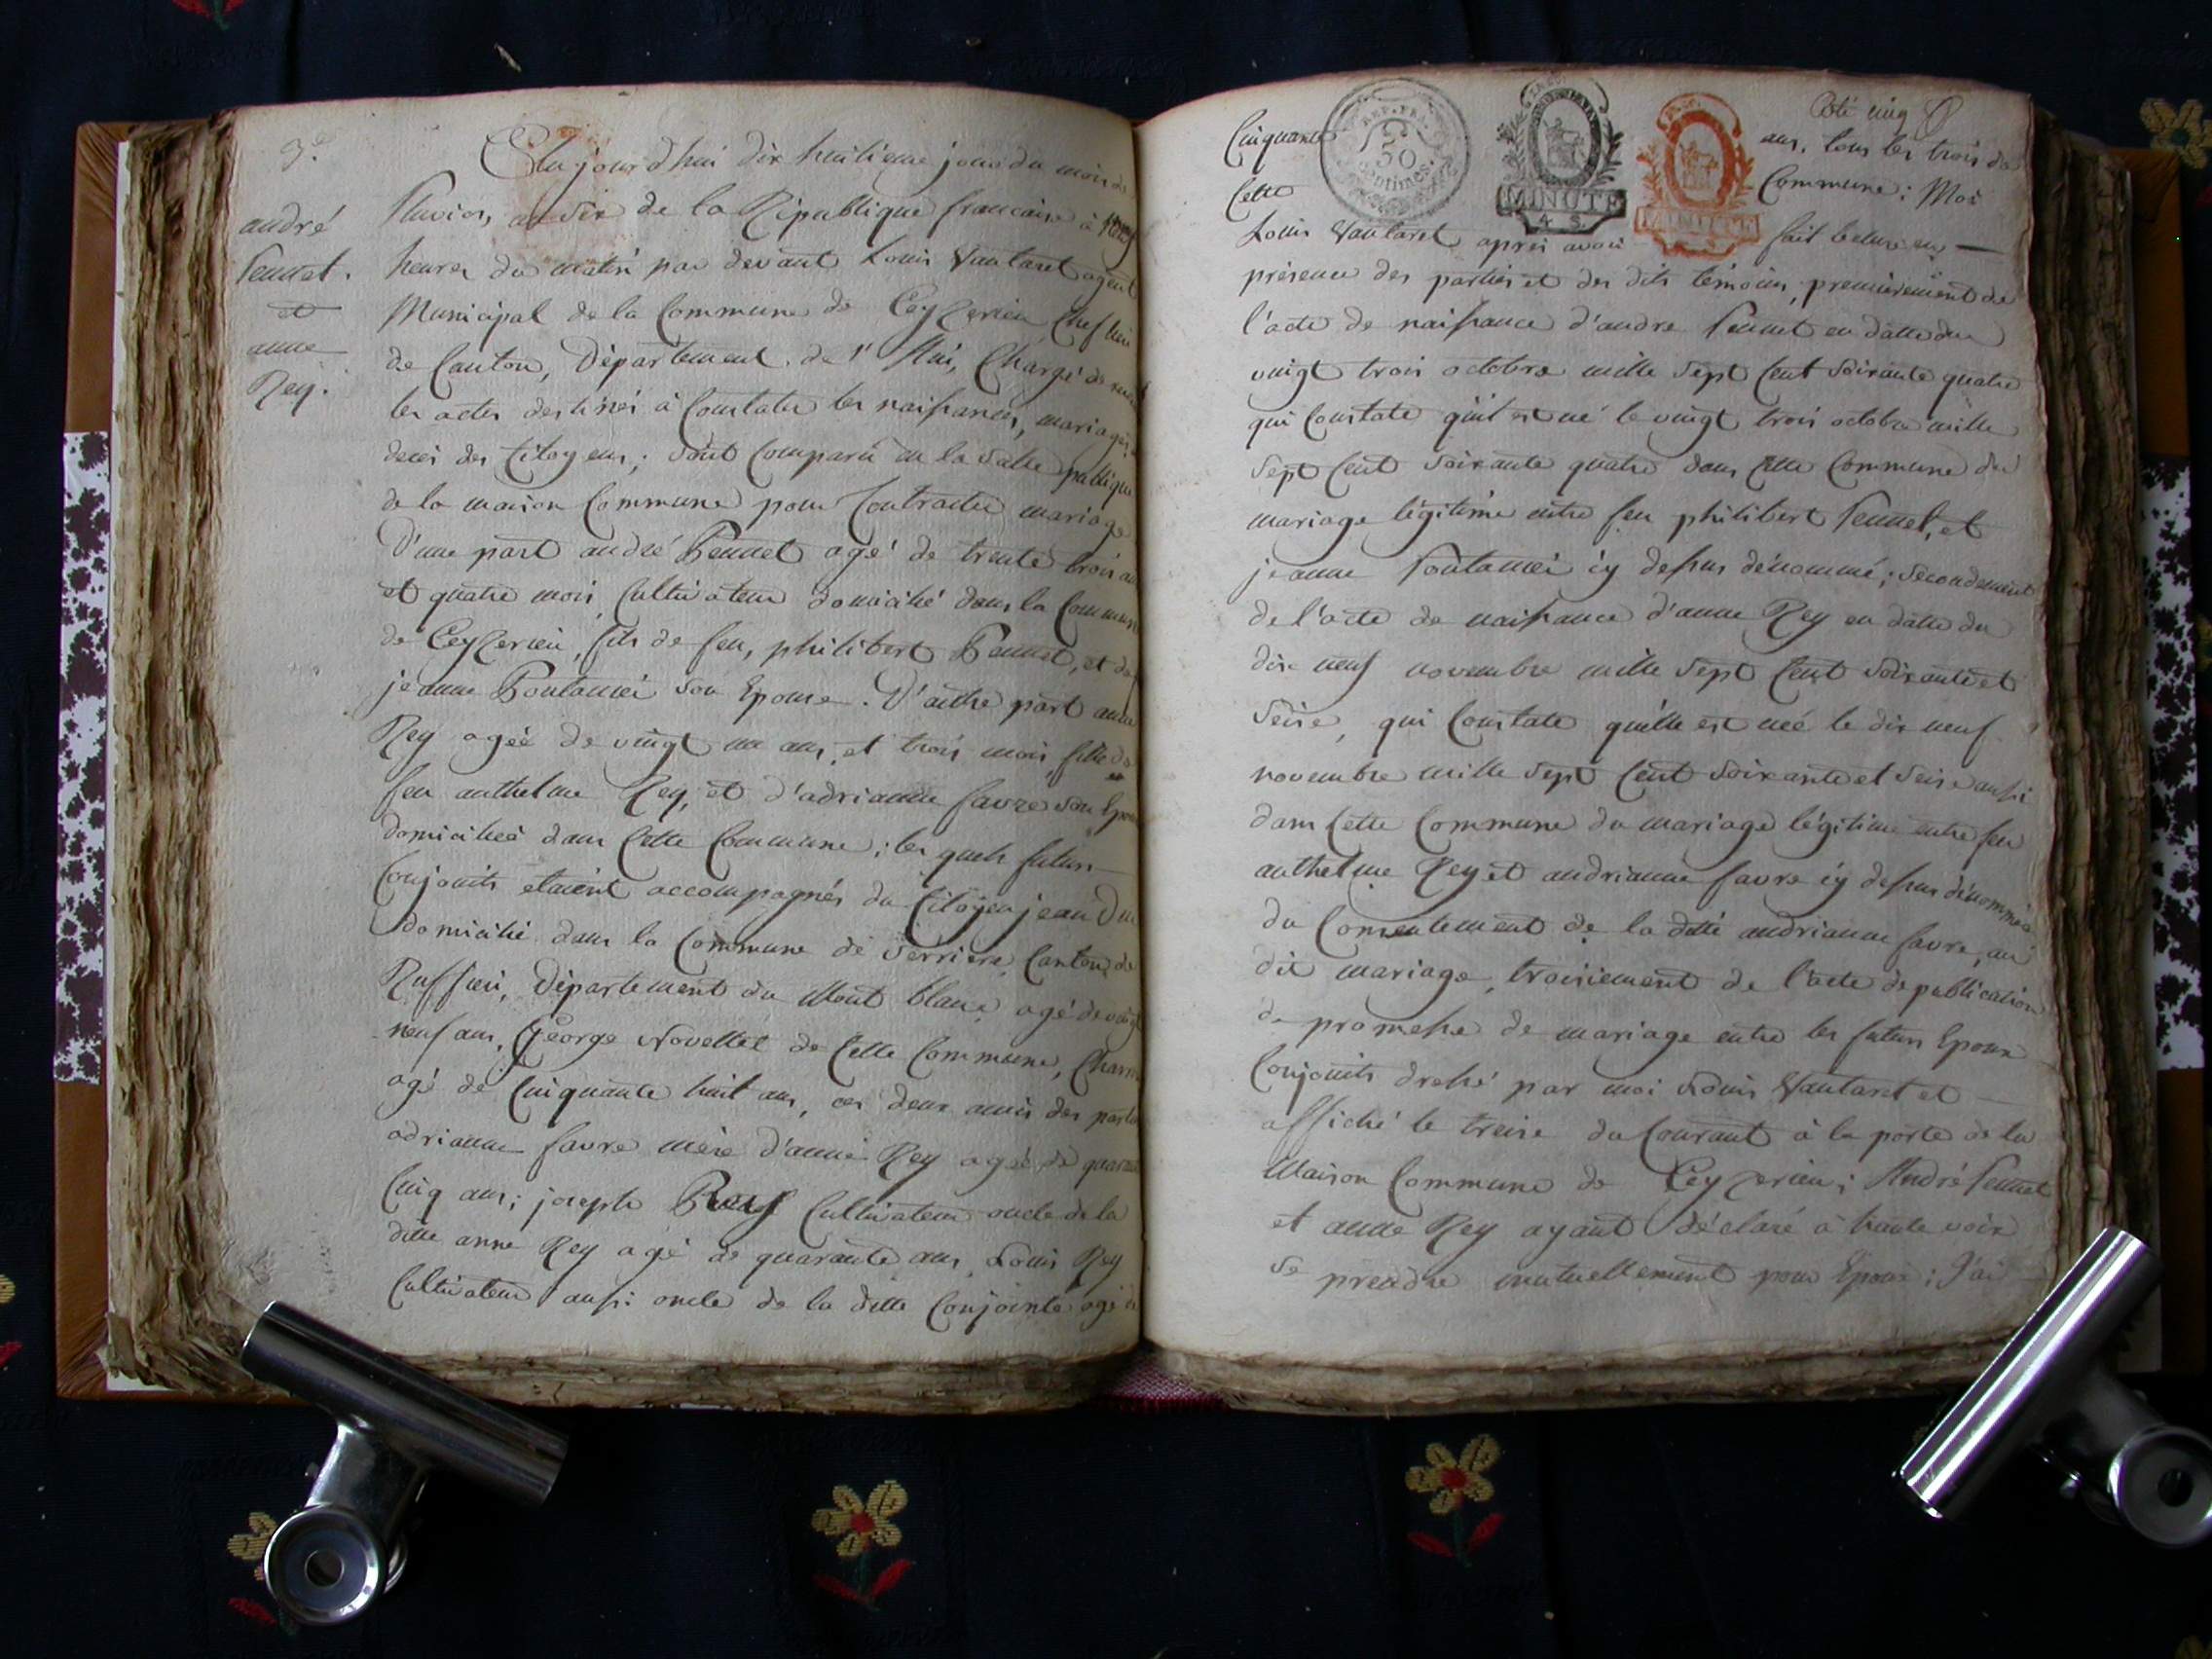 3e
andré
Pennet.
et
anne
Rey.
Aujourd'hui dix huitieme jour du mois de
Pluviose, an Six de la République francaise à
heures du matin par devant Louis Vautaret agent
Municipal de la Commune de Ceyzerieu Chef lieu
de Canton, Département de l'Ain, Chargé de
les actes destinés à Constater les naissances, mariages
deces des Citoyens; sont comparu en la Salle publique
de la maison Commune pour Contracter mariage
D'une part andré Pennet agé de trente trois ans
et quatre mois, Cultivateur domicilié dans la Commune
de Ceyzerieu, fils de feu, philibert Pennet, et de
jeanne Pontanier son Epouse. D'autre part anne
Rey agée de vingt un ans, et trois mois fille de
feu anthelme Rey, et d'adrianne favre son Epouse
domiciliée dans Cette Commune; les quels futurs
Conjoints etaient accompagnés du Citoyen jean
domicilié dans la Commune de Serriere, Canton de
Ruffieu, Département du Mont blanc agé de vingt
neuf ans, George Novellet de Cette Commune,
agé de Cinquante huit ans, ces deux amis des parties
adrianne favre mère d'anne Rey agée de quarante
Cinq ans; joseph Rey Cultivateur oncle de la
ditte anne Rey agé de quarante ans, Louis Rey
Cultivateur aussi oncle de la ditte Conjointe agé de
Coté cinq
REP. FRA.
50
Centimes.
MINUTE
4 S
MINUTE
Cinquante ans, tous les trois de
Cette Commune: Moi
Louis Vautaret après avoir fait lecture en
présence des parties et des dits témoins, premièrement de
l'acte de naissance d'andre Pennet en datte du
vingt trois octobre mille Sept Cent Soixante quatre
qui Constate qu'il est né le vingt trois octobre mille
Sept Cent Soixante quatre dans Cette Commune du
mariage légitime entre feu philibert Pennet, et
jeanne Pontanier cy dessus dénommé; Secondement
de l'acte de naissance d'anne Rey en datte du
dix neuf novembre mille Sept Cent Soixante et
Seise, qui Constate qu'elle est née le dix neuf
novembre mille Sept Cent Soixante et Seise aussi
dans Cette Commune du mariage légitime entre feu
anthelme Rey et andrianne favre cy dessus dénommés
du Consentement de la ditte andrianne favre, au
dit mariage, troisiement de l'acte de publication
de promesse de mariage entre les futurs Epoux
Conjoints dressé par moi Louis Vautaret et
affiché le treise du Courant à la porte de la
Maison Commune de Ceyzerieu; André Pennet
et anne Rey ayant déclaré à haute voix
se prendre mutuellement pour Epoux; J'ai